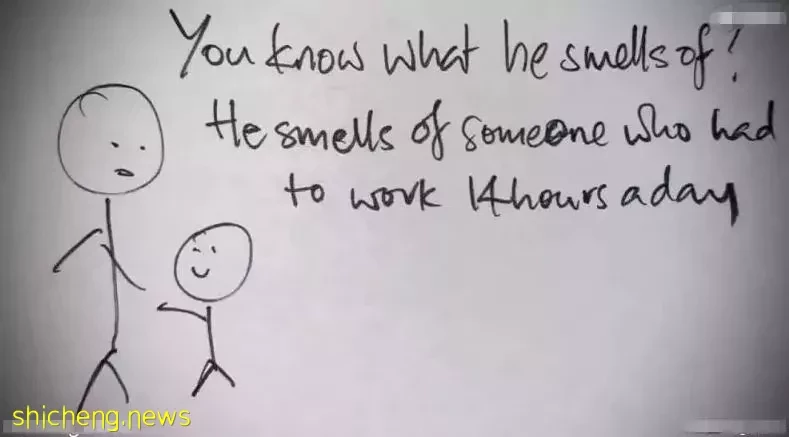 You know what he smells of?
He smells of someone who had
to work 14 hours a day
shicheng.news